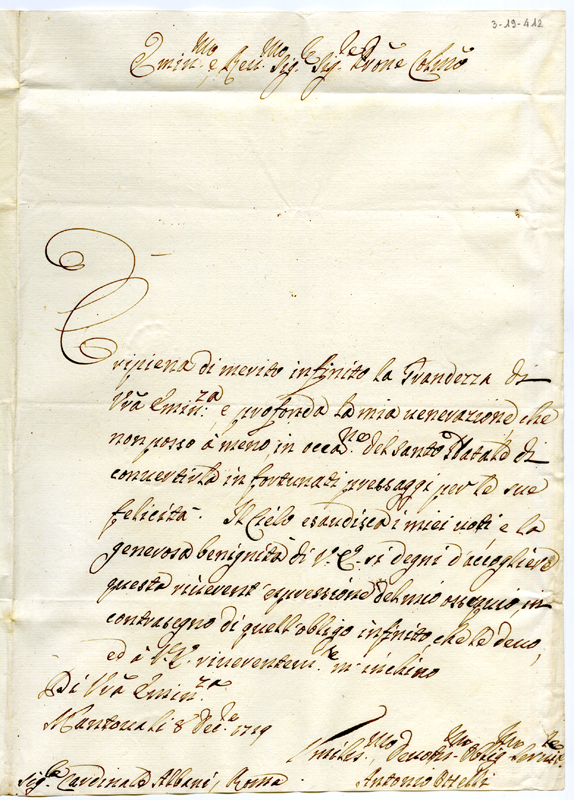 3-19-412
Emin.mo e Reu.mo Sig.r Sig.r Prône Colmo
È ripiena di merito infinito la Grandezza di
Vrâ Emin.za, e profonda la mia uenerazione che
non posso à meno in occa.ne del Santo Natale di
conuertirla in fortunati pressaggi per le sue
felicità. Il Cielo esaudisca i miei uoti e la
generosa benignità di V. E. si degni d'accogliere
questa riuerent' espressione del mio ossequio in
contrasegno di quell'obligo infinito, che le deuo,
ed à V. E. riuerentem.te m'inchino
Di Vrâ Emin.za
Mantoua li 8 Dec.re 1719
Vmiliss.mo Deuotis.mo Oblig.mo Seru.re
Sig.r Cardinale Albani, Roma.
Antonio